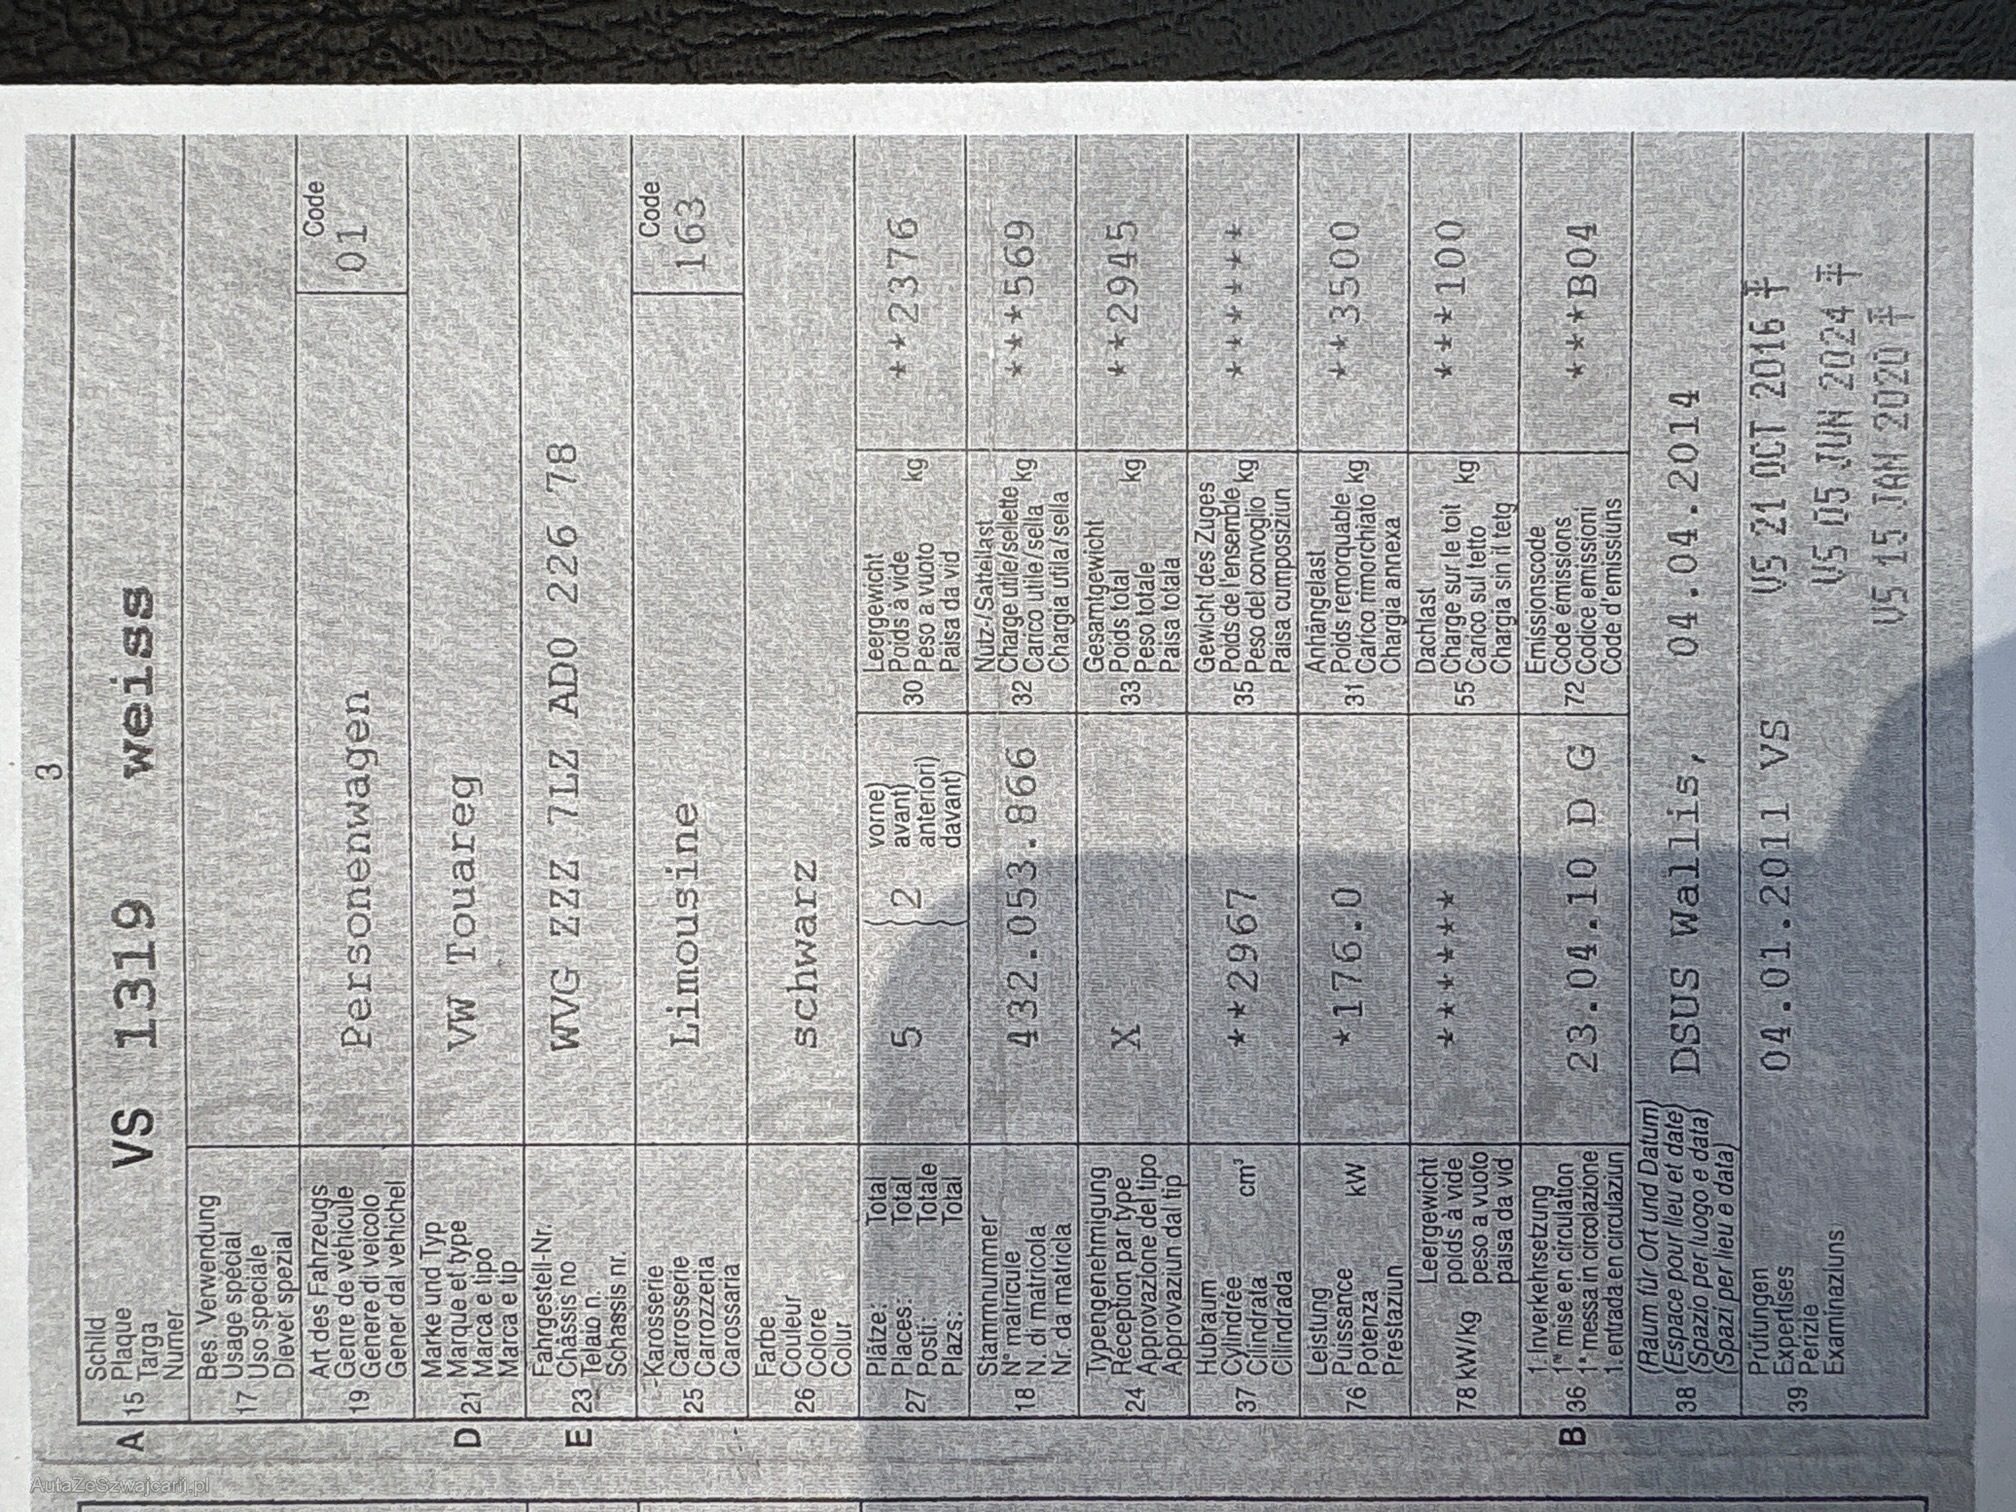 3
A 15 Schild
Plaque
Targa
Numer
VS 1319 weiss
17 Bes. Verwendung
Usage spécial
Uso speciale
Diever spezial
19 Art des Fahrzeugs
Genre de véhicule
Genere di veicolo
Gener dal vehichel
Personenwagen
Code
01
D 21 Marke und Typ
Marque et type
Marca e tipo
Marca e tip
VW Touareg
E 23 Fahrgestell-Nr.
Châssis no
Telaio n.
Schassis nr.
WVG ZZZ 7LZ AD0 226 78
25 Karosserie
Carrosserie
Carrozzeria
Carossaria
Limousine
Code
163
26 Farbe
Couleur
Colore
Colur
schwarz
27 Plätze: Total
Places: Total
Posti: Totale
Plazs: Total
5
vorne)
avant)
anteriori)
davant)
2
30 Leergewicht
Poids à vide
Peso a vuoto kg
Paisa da vid
**2376
18 Stammnummer
N° matricule
N. di matricola
Nr. da matricla
432.053.866
32 Nutz-/Sattellast
Charge utile/sellette kg
Carico utile/sella
Chargia utila/sella
***569
24 Typengenehmigung
Réception par type
Approvazione del tipo
Approvaziun dal tip
X
33 Gesamtgewicht
Poids total
Peso totale kg
Paisa totala
**2945
37 Hubraum
Cylindrée
Cilindrata cm³
Cilindrada
**2967
35 Gewicht des Zuges
Poids de l'ensemble
Peso del convoglio kg
Paisa cumposiziun
******
76 Leistung
Puissance
Potenza kW
Prestaziun
*176.0
31 Anhängelast
Poids remorquable
Carico rimorchiato kg
Chargia annexa
**3500
78 kW/kg Leergewicht
poids à vide
peso a vuoto
paisa da vid
******
55 Dachlast
Charge sur le toit
Carico sul tetto kg
Chargia sin il tetg
***100
B 36 1. Inverkehrsetzung
1re mise en circulation
1a messa in circolazione
1. entrada en circulaziun
23.04.10 D G
72 Emissionscode
Code émissions
Codice emissioni
Code d'emissiuns
***B04
38 (Raum für Ort und Datum)
(Espace pour lieu et date)
(Spazio per luogo e data)
(Spazi per lieu e data)
DSUS Wallis, 04.04.2014
39 Prüfungen
Expertises
Perizie
Examinaziuns
04.01.2011 VS
VS 21 OCT 2016
VS 05 JUN 2024
VS 15 JAN 2020
AutaZeSzwajcarii.pl